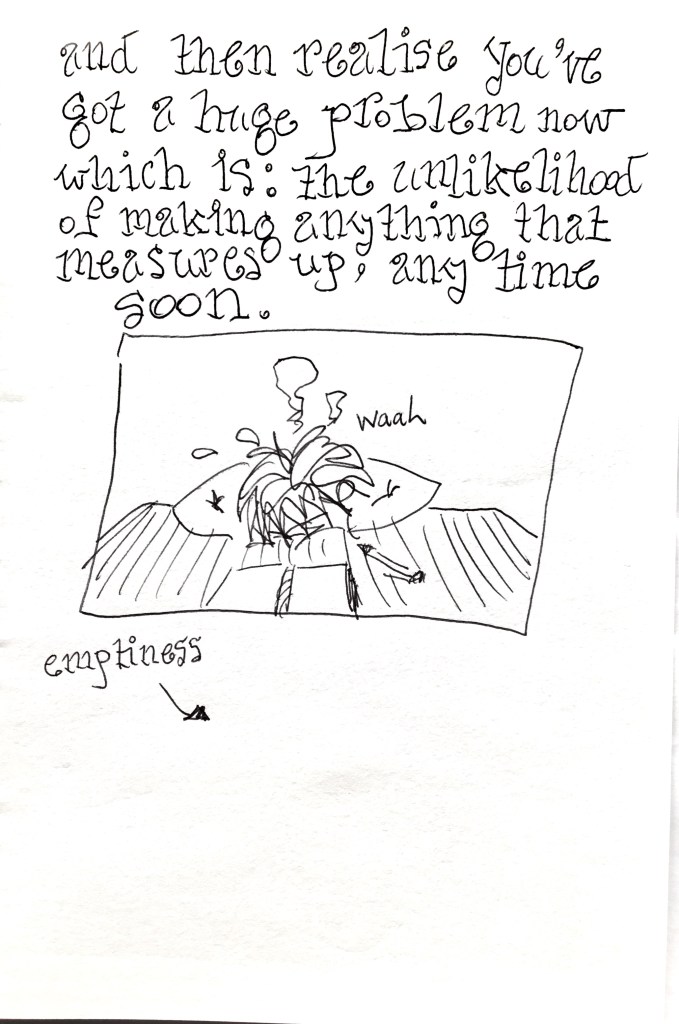 and then realise you've
got a huge problem now
which is: the unlikelihood
of making anything that
measures up, any time
soon.
waah
emptiness